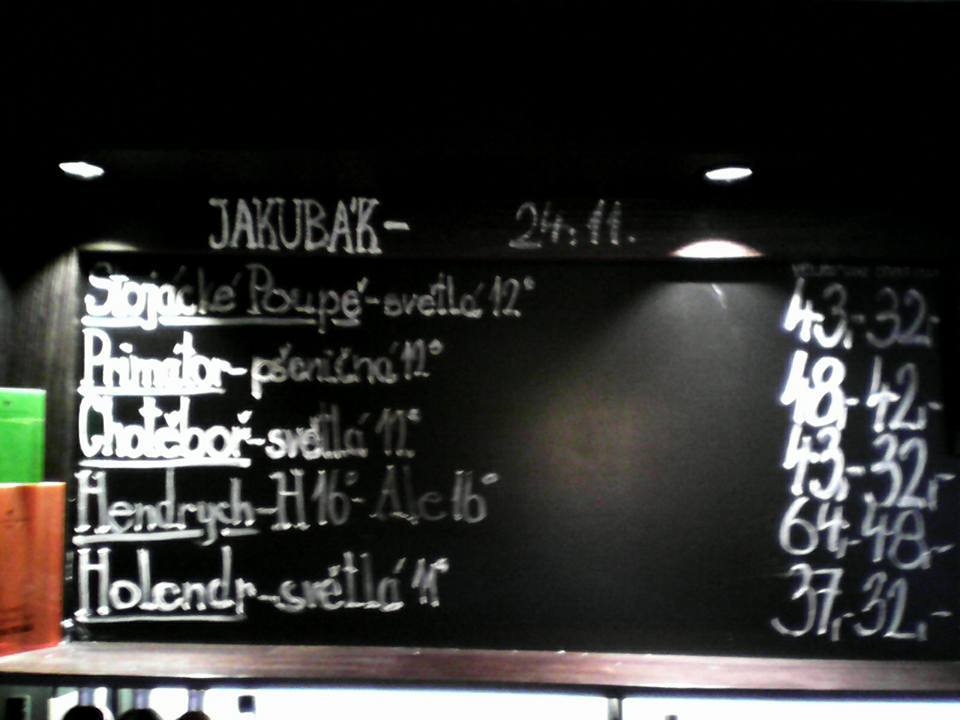 JAKUBÁK- 24.11.
Stojácké Poupě-světlá 12° 43,- 32,-
Primátor-pšeničná 12° 48,- 42,-
Chotěboř-světlá 12° 43,- 32,-
Hendrych-H16°-Ale 16° 64,- 48,-
Holendr-světlá 11° 37,- 32,-